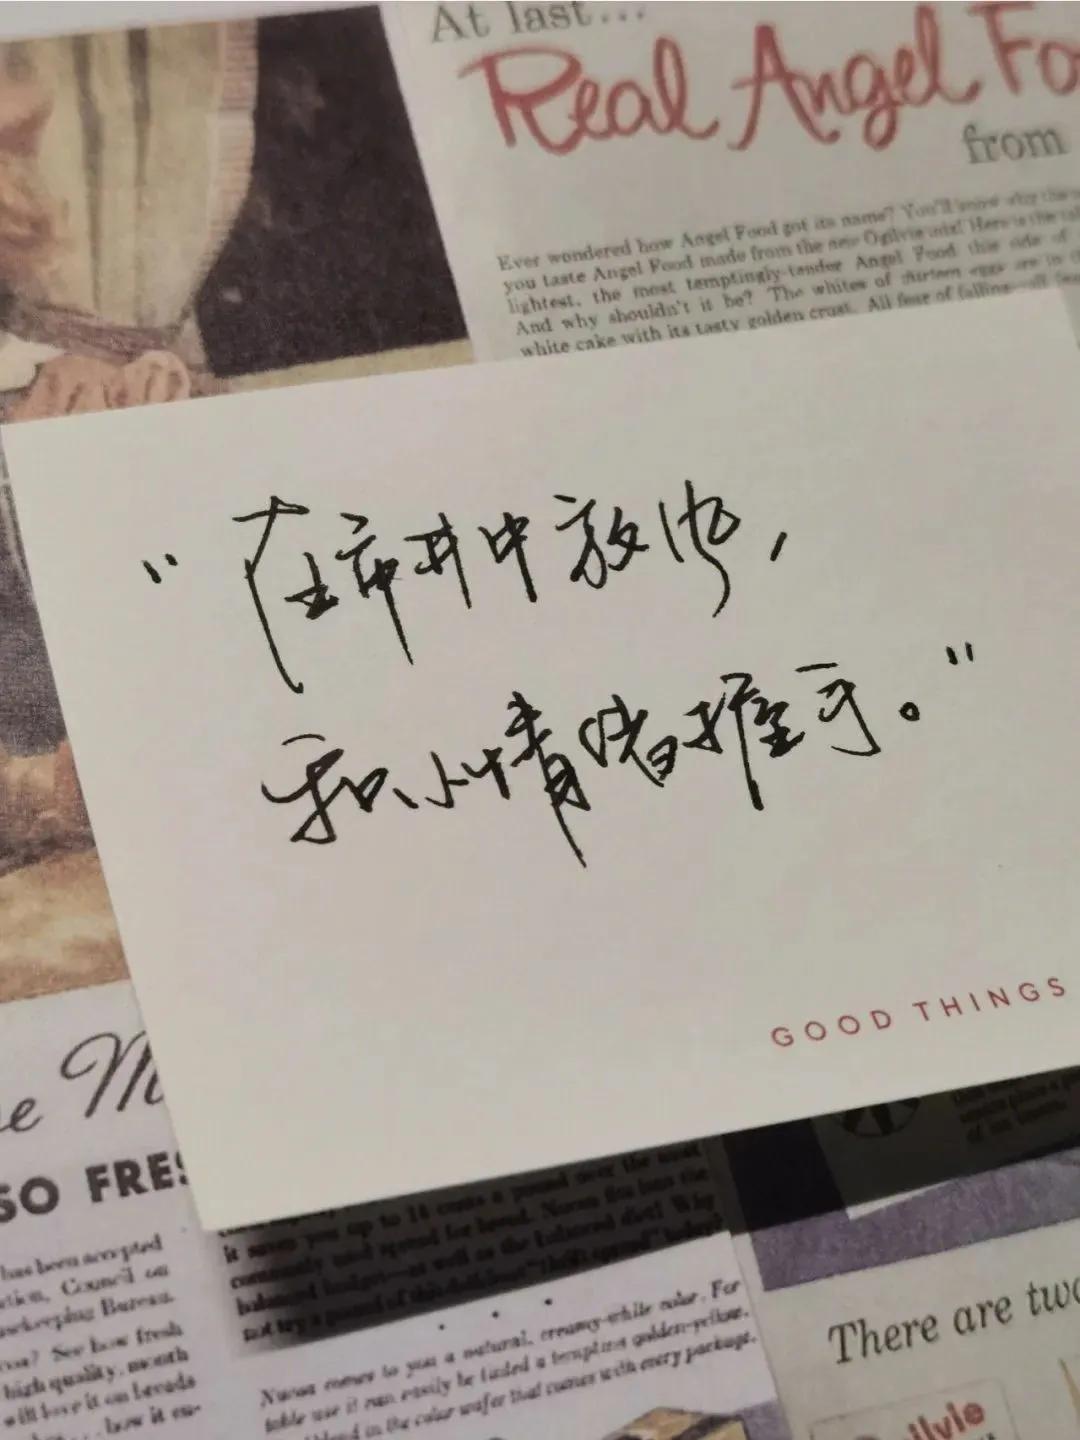 At last...
Real Angel Fo
from
Ever wondered how Angel Food got its name? You'll know why the
you taste Angel Food made from the new Ogilvie mix! Here is the
lightest, the most temptingly-tender Angel Food this side of
And why shouldn't it be? The whites of thirteen eggs are in
white cake with its tasty golden crust. All fear of falling—all
“在市井中放沙，
和小情绪推手。”
GOOD THINGS
SO FRES
has been accepted
Council on
Bureau.
See how fresh
high quality, month
will love it on breads
how it
it saves you up to 14 cents a pound over the most
commonly used spread for bread. Nucoa fits into the
balanced budget—as well as the balanced diet! Why
not try a pound of this delicious "thrift spread" today?
Nucoa comes to you a natural, creamy-white color. For
table use it can easily be tinted a tempting golden-yellow.
blend in the color wafer that comes with every package.
There are two
Ogilvie